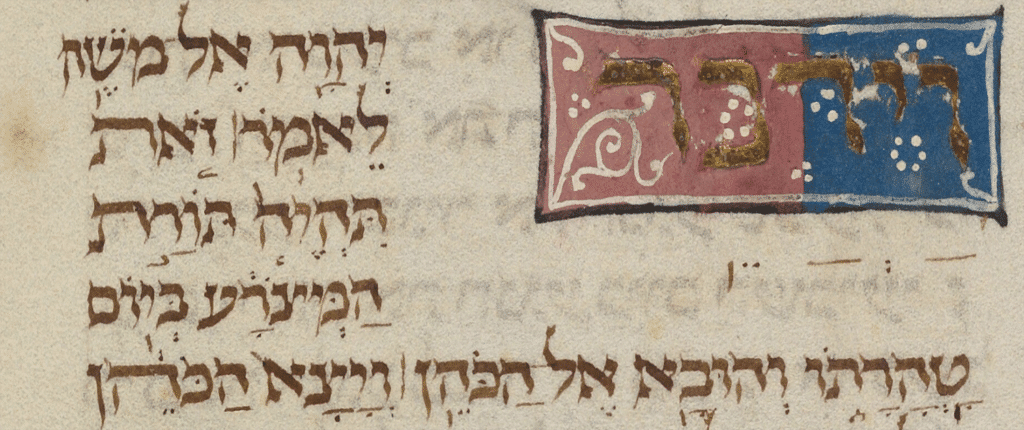 וידבר
יְהוָה אֶל מֹשֶׁה
לֵאמֹר׀ זֹאת
תִּהְיֶה תּוֹרַת
הַמְּצֹרָע בְּיוֹם
טָהֳרָתוֹ וְהוּבָא אֶל הַכֹּהֵן׀ וְיָצָא הַכֹּהֵן